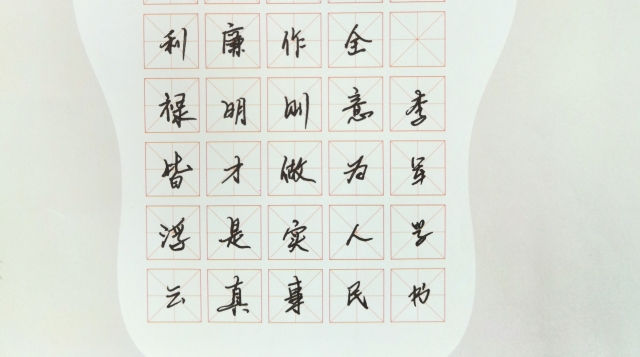 利禄皆浮云
廉明才是真
作则做实事
全意为人民
李军学书